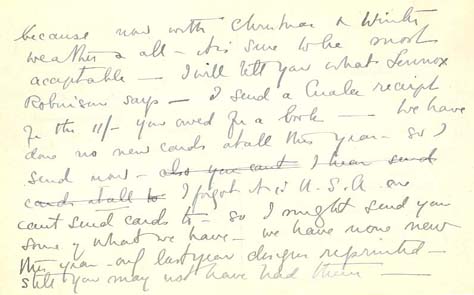 because now with Christmas & Winter
weather & all – it is sure to be most
acceptable – I will tell you what Lennox
Robinson says – I send a Cuala receipt
for the 11/– you owed for a book – We have
done no new cards at all this year – so I
send now – also you cant I hear send
cards at all to I forgot it is U.S.A. one
cant send cards to – so I might send you
some of what we have – we have none new
this year – only last year designs reprinted –
still you may not have had them –